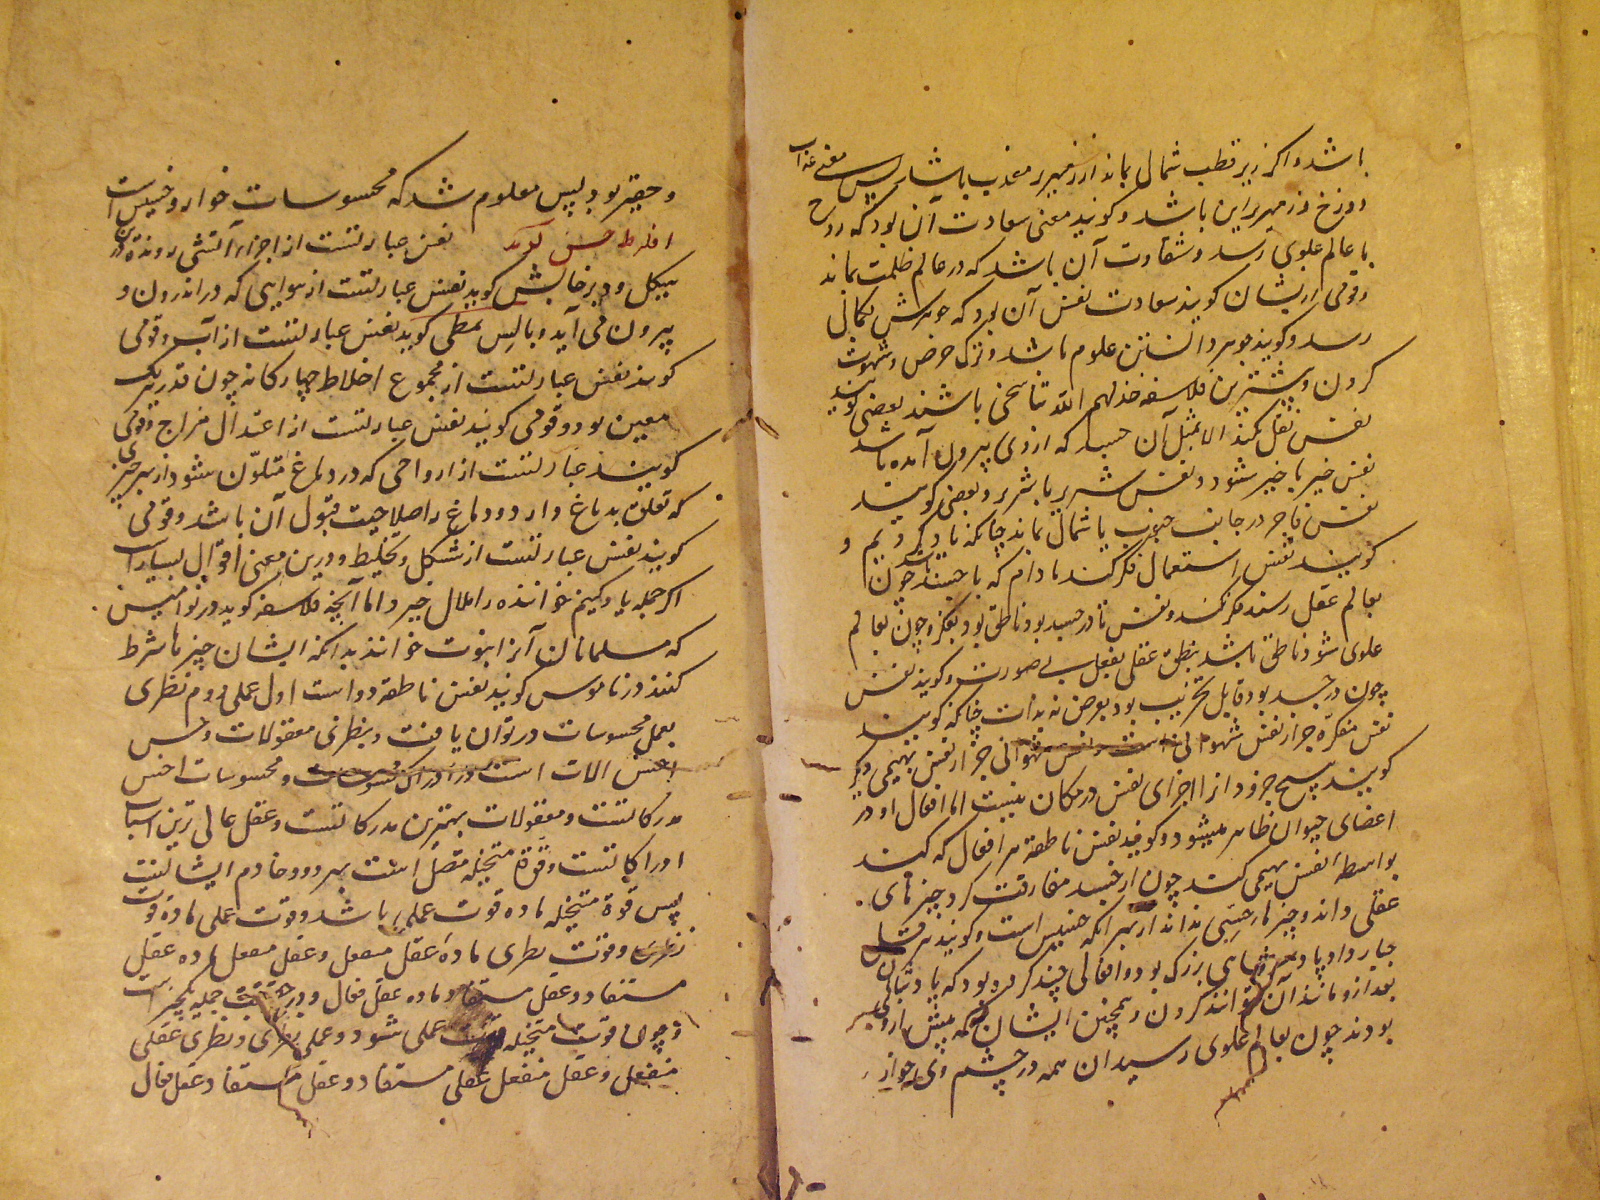 باشد و اگر زیر قطب شمال بماند از زمهریر معذب باشد پس معنی عذاب
دوزخ و زمهریر این باشد و گویند معنی سعادت آن بود که روح
با عالم علوی رسد و شقاوت آن باشد که در عالم ظلمت بماند
و قومی از ایشان گویند سعادت نفس آن بود که جوهرش بکمال
رسد و گویند جوهر دانستن علوم باشد و ترک حرص و شهوت
کردن و بیشترین فلاسفه خذلهم الله تناسخی باشند بعضی گویند
نفس نقل نکند الا بمثل آن جسد که از وی بیرون آمده باشد
نفس خیر با خیر شود و نفس شریر با شریر و بعضی گویند
نفس فاجر در جانب جنوب یا شمال بماند چنانکه یاد کردیم و
گویند نفس استعمال فکر کند مادام که با جسد باشد چون
بعالم عقل رسد فکر نکند و نفس تا در جسد بود ناطق بود بفکر و چون بعالم
علوی شود ناطق باشد بنطق عقلی بفعل بی صورت و گویند نفس
چون در جسد بود قابل تجزیت بود بعرض نه بذات چنانکه گویند
نفس مفکره جز از نفس شهوانی است و نفس شهوانی جز از نفس بهیمی و
گویند هیچ جزو از اجزای نفس در مکان نیست اما افعال او در
اعضای حیوان ظاهر میشود و گویند نفس ناطقه هر افعال که کند
بواسطه نفس بهیمی کند چون از جسد مفارقت کرد چیزهای
عقلی داند و چیزها حسی نداند از بهر آنکه خسیس است و گویند
جبار داد پادشاهی بزرگ بود و افعالی چند کرده بود که پادشاهان
بعد از و مانند آن نتوانند کردن و همچنین ایشان که پیش از وی
بودند چون بعالم علوی رسیدن همه در چشم وی خوار
و حقیر بود پس معلوم شد که محسوسات خوار و خسیس است
افلوطرخس گوید نفس عبارتست از اجزاء آتشی رونده در
هیکل و دیوجانس گوید نفس عبارتست از هوایی که در اندرون و
بیرون می آید و ثالیس ملطی گوید نفس عبارتست از آب و قومی
گویند نفس عبارتست از مجموع اخلاط چهارگانه چون قدر هر یک
معین بود و قومی گویند نفس عبارتست از اعتدال مزاج و قومی
گویند عبارتست از ارواحی که در دماغ متلون شود از هر چیزی
که تعلق بدماغ دارد و دماغ را صلاحیت قبول آن باشد و قومی
گویند نفس عبارتست از شکل و تخلیط و درین معنی اقوال بسیار است
اگر جمله یاد کنیم خواننده را ملال خیزد اما آنچه فلاسفه گویند در نوامیس
که مسلمانان آنرا نبوت خوانند بدانکه ایشان چیزها شرط
کنند در ناموس گویند نفس ناطقه دو است اول عملی دوم نظری
بعمل محسوسات در توان یافت و بنظری معقولات و حس
اخس آلات است در ادراک محسوسات و محسوسات اخس
مدرکاتست و معقولات بهترین مدرکاتست و عقل عالی ترین اسباب
ادراکاتست و قوة متخیله متصل است بهر دو و خادم ایشانست
پس قوة متخیله ماده قوت عملی باشد و قوت عملی ماده قوت
نظری و قوت نظری ماده عقل منفعل و عقل منفعل ماده عقل
مستفاد و عقل مستفاد ماده عقل فعال و در حقیقت جمله یک چیز است
و چون قوت متخیله قوت عملی شود و عملی نظری و نظری عقلی
منفعل و عقل منفعل عقلی مستفاد و عقل مستفاد عقل فعال